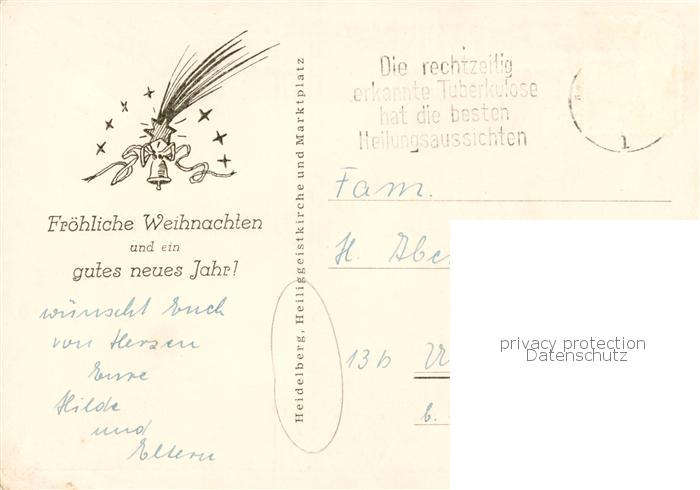 Fröhliche Weihnachten
und ein
gutes neues Jahr!
wünscht Euch
von Herzen
Eure
Hilde
und
Eltern
Heidelberg, Heiliggeistkirche und Marktplatz
Die rechtzeitig
erkannte Tuberkulose
hat die besten
Heilungsaussichten
Fam.
H. Abe
13b
privacy protection
Datenschutz